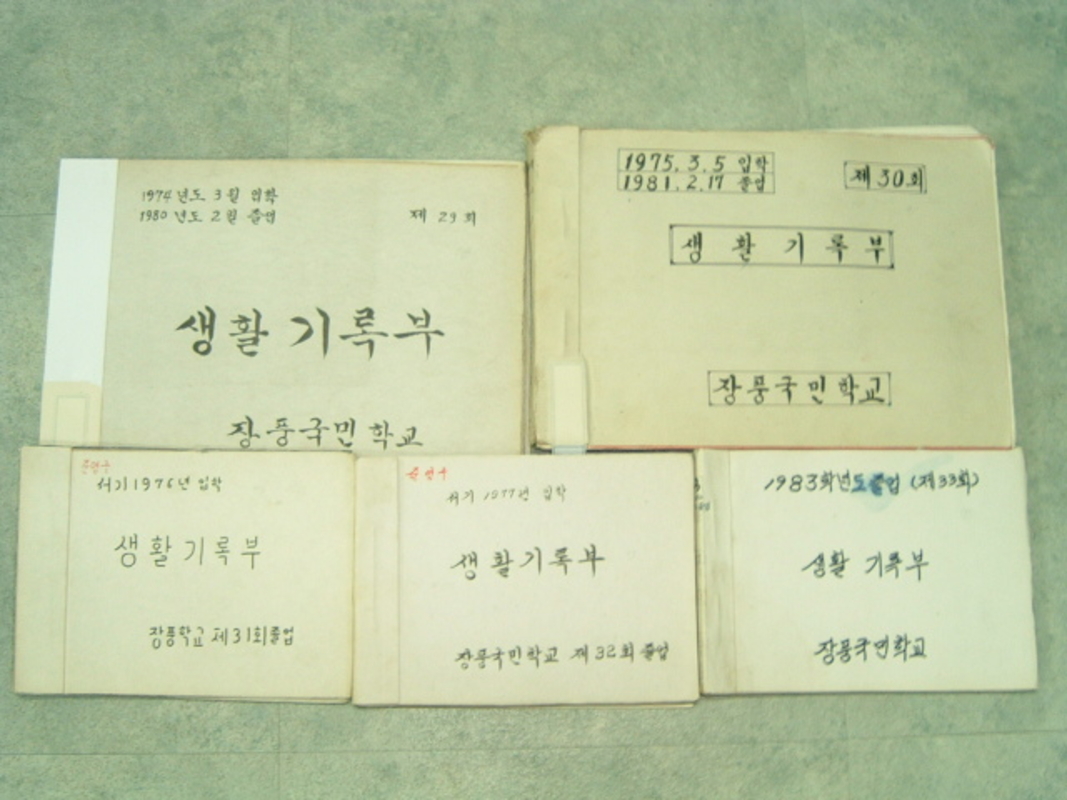 1974 년도 3월 입학
1980 년도 2월 졸업
제 29 회
생활 기록부
장풍국민학교
1975. 3. 5 입학
1981. 2. 17 졸업
제 30 회
생활기록부
장풍국민학교
서기 1976년 입학
생활기록부
장풍학교 제 31회 졸업
서기 1977년 입학
생활기록부
장풍국민학교 제 32회 졸업
1983학년도 졸업 (제33회)
생활 기록부
장풍국민학교